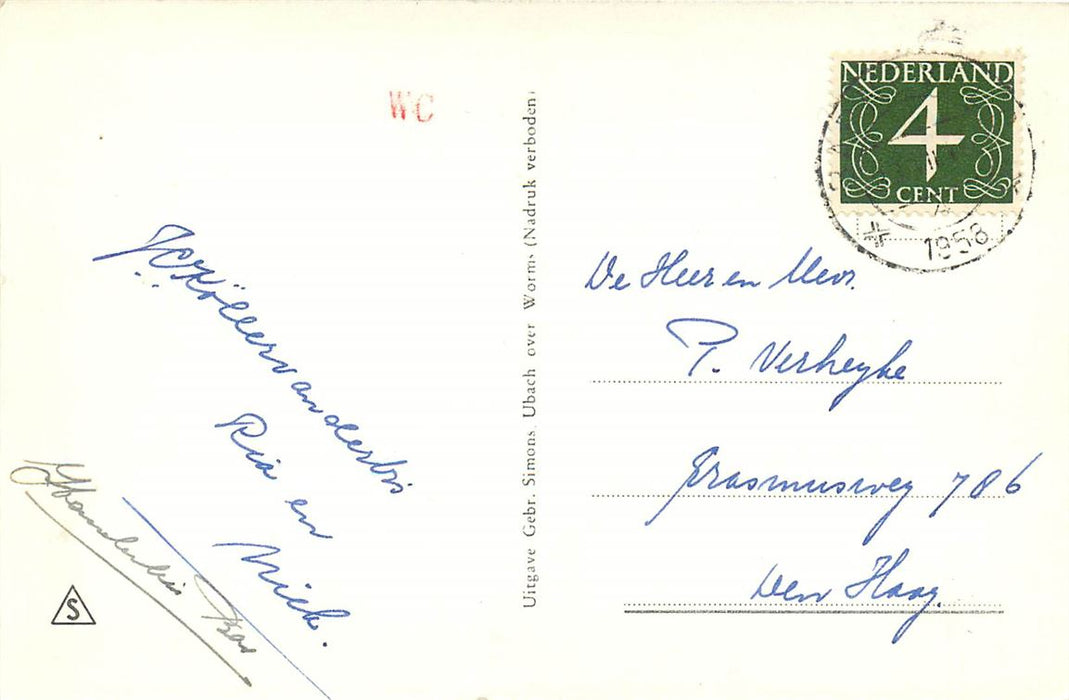 WC
Ria en
Niek.
S
Uitgave Gebr. Simons, Ubach over Worms (Nadruk verboden)
NEDERLAND
4
CENT
1958
De Heer en Mevr.
P. Verheyke
Erasmusweg 786
Den Haag.